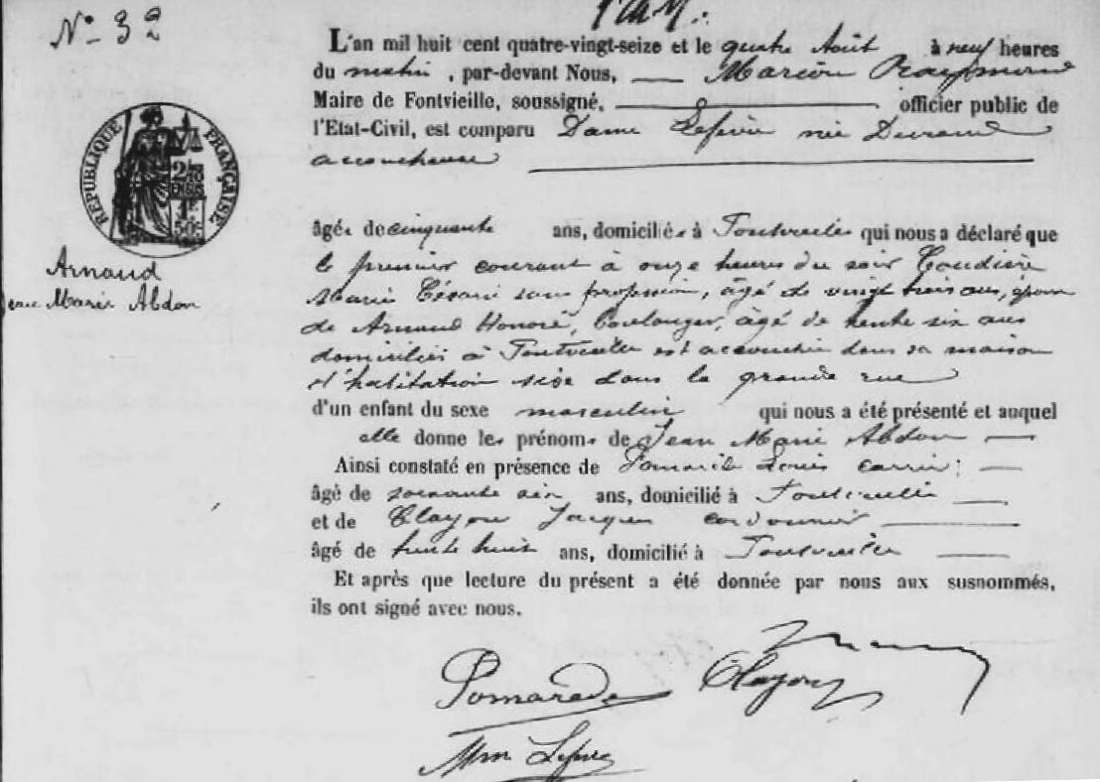 N° 32
L'an mil huit cent quatre-vingt-seize et le quatre Août à neuf heures
du matin, par-devant Nous, Marion Raymond
Maire de Fontvieille, soussigné, officier public de
l'Etat-Civil, est comparu Dame née Durand
accoucheuse
RÉPUBLIQUE FRANÇAISE
Arnaud
Jean Marie Abdon
âgée de cinquante ans, domiciliée à Fontvieille qui nous a déclaré que
le premier courant à onze heures du soir
Marie sans profession, âgé de vingt trois ans, épouse
de Arnaud Honoré, boulanger, âgé de trente six ans
domiciliés à Fontvieille est accouchée dans sa maison
d'habitation sise dans la grande rue
d'un enfant du sexe masculin qui nous a été présenté et auquel
elle donne les prénoms de Jean Marie Abdon
Ainsi constaté en présence de Louis
âgé de soixante six ans, domicilié à Fontvieille
et de Clayon Jacques cordonnier
âgé de trente huit ans, domicilié à Fontvieille
Et après que lecture du présent a été donnée par nous aux susnommés,
ils ont signé avec nous.
Pomarède